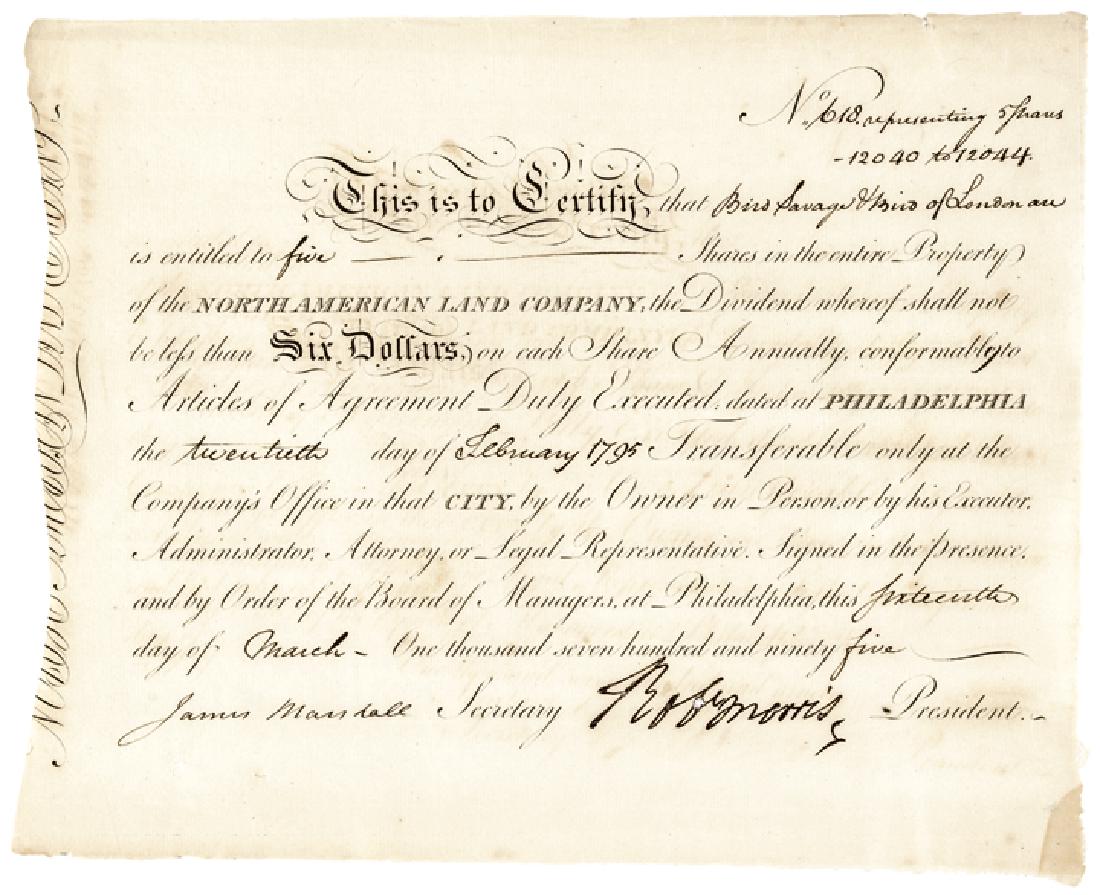 No. 618. representing 5 Shares
- 12040 to 12044.
This is to Certify, that Bird Savage & Bird of London are
is entitled to five Shares in the entire Property
of the NORTH AMERICAN LAND COMPANY, the Dividend whereof shall not
be less than Six Dollars, on each Share Annually, conformably to
Articles of Agreement Duly Executed, dated at PHILADELPHIA
the twentieth day of February 1795 Transferable only at the
Company's Office in that CITY, by the Owner in Person, or by his Executor,
Administrator, Attorney, or Legal Representative. Signed in the presence,
and by Order of the Board of Managers, at Philadelphia, this sixteenth
day of March - One thousand seven hundred and ninety five
James Marshall Secretary Robt Morris, President.